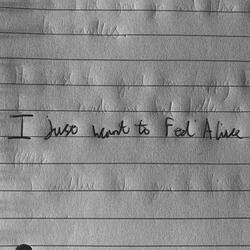 I just want to Feel Alive